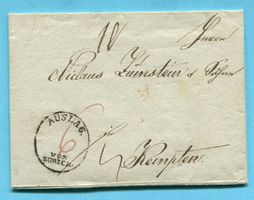 10
Herrn
Niclaus Zumstein & Söhne
AUSLAG.
VON
ZÜRICH
6
Kempten.